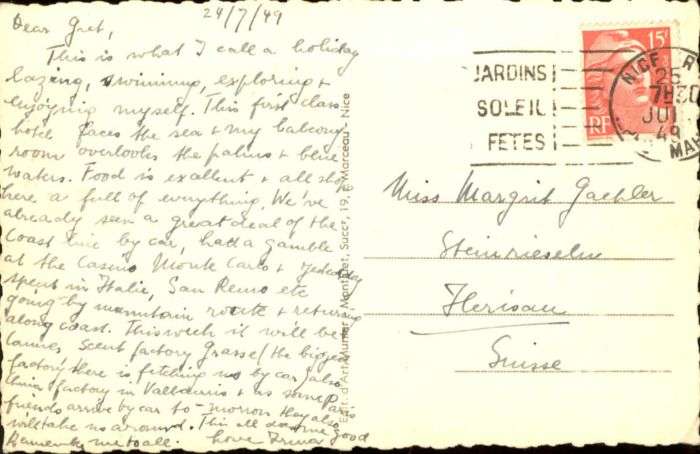 24/7/49
Dear Gret,
This is what I call a holiday
lazing, swimming, exploring +
enjoying myself. This first class
hotel faces the sea + my balcony
room overlooks the palms + blue
waters. Food is excellent + all shops
here a full of everything. We've
already seen a great deal of the
coast line by car, had a gamble
at the Casino Monte Carlo + yesterday
spent in Italie, San Remo etc
going by mountain route + returning
along coast. This week it will be
Cannes, scent factory Grasse (the biggest
factory there is fetching us by car) also
factory in Vallauris + as some Paris
friends arrive by car to-morrow they also
will take us around. This all does me good
Remember me to all. Love Irma
Edit. d'Art Munier, Monteret, Succr, 19, R. Marceau - Nice
JARDINS
SOLEIL
FETES
NICE R
25
7H30
JUI
49
MAR
15F
RF
Miss Margrit Gaehler
Steinrieseln
Herisau
Suisse